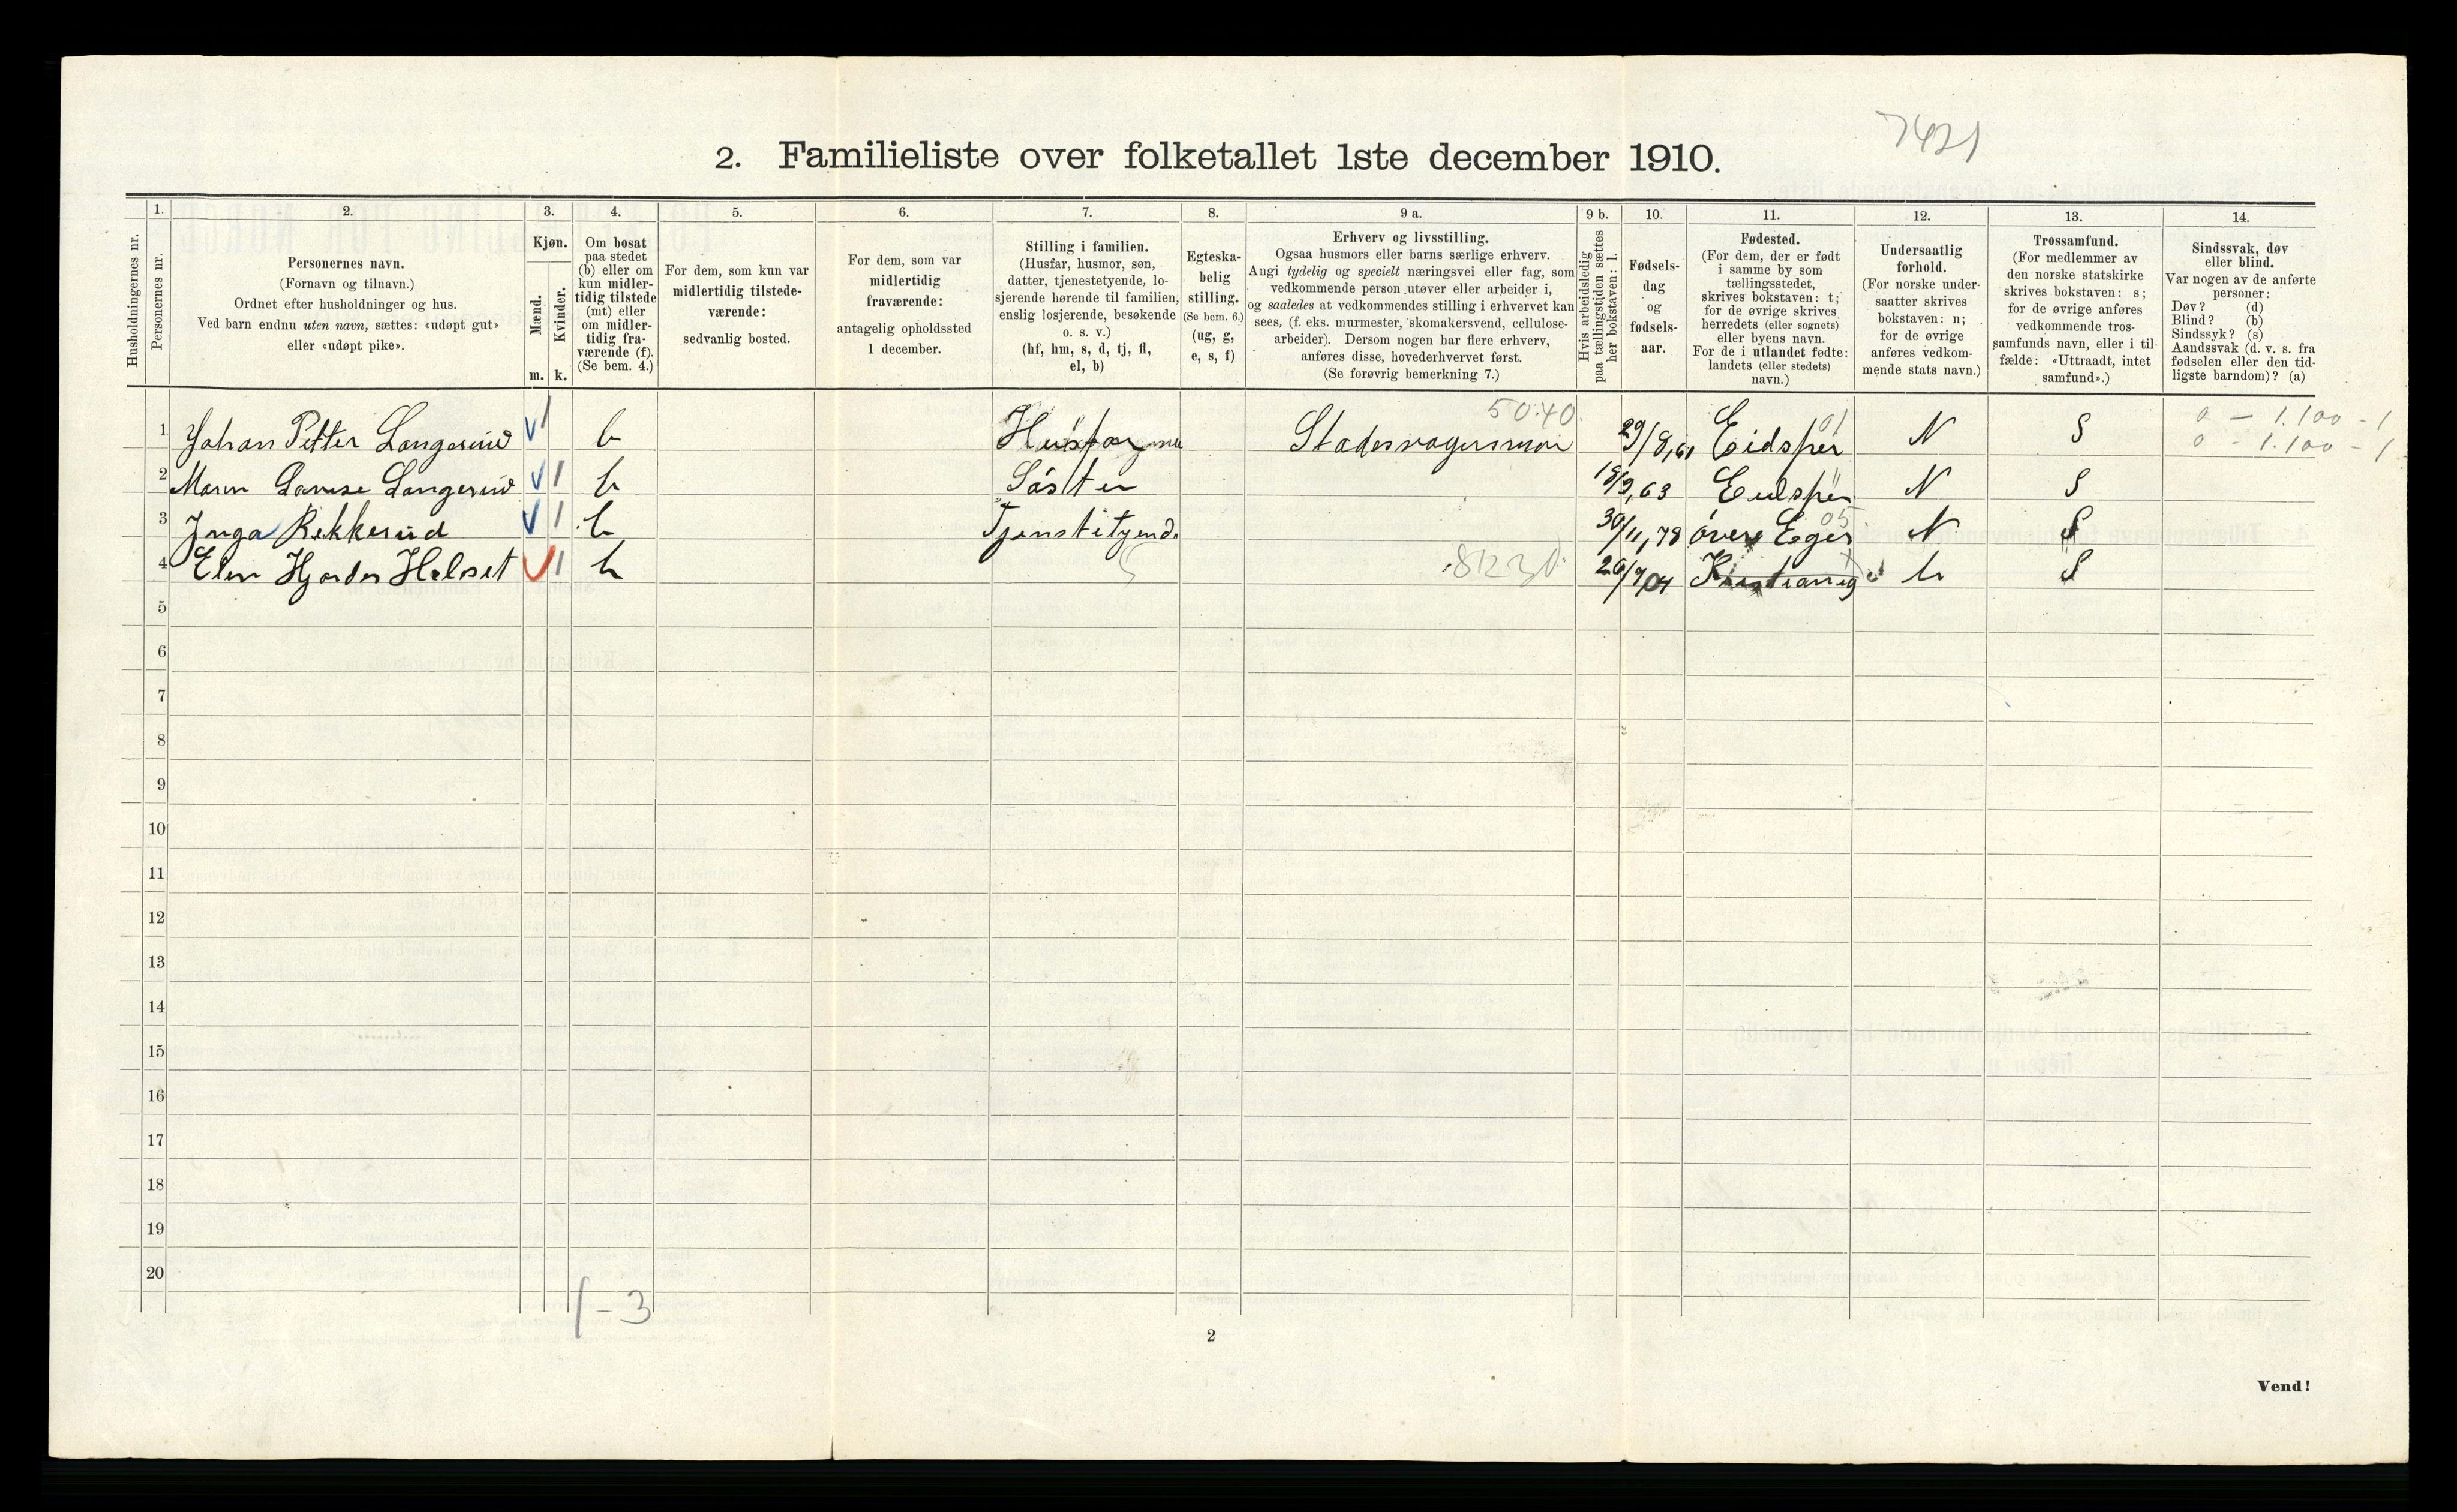 7421
2. Familieliste over folketallet 1ste december 1910.
Husholdningernes nr.
1.
Personernes nr.
2.
Personernes navn.
(Fornavn og tilnavn.)
Ordnet efter husholdninger og hus.
Ved barn endnu uten navn, sættes: «udøpt gut»
eller «udøpt pike».
3.
Kjøn.
Mænd.
Kvinder.
m. k.
4.
Om bosat
paa stedet
(b) eller om
kun midler-
tidig tilstede
(mt) eller
om midler-
tidig fra-
værende (f).
(Se bem. 4.)
5.
For dem, som kun var
midlertidig tilstede-
værende:
sedvanlig bosted.
6.
For dem, som var
midlertidig
fraværende:
antagelig opholdssted
1 december.
7.
Stilling i familien.
(Husfar, husmor, søn,
datter, tjenestetyende, lo-
sjerende hørende til familien,
enslig losjerende, besøkende
o. s. v.)
(hf, hm, s, d, tj, fl,
el, b)
8.
Egteska-
belig
stilling.
(Se bem. 6.)
(ug, g,
e, s, f)
9 a.
Erhverv og livsstilling.
Ogsaa husmors eller barns særlige erhverv.
Angi tydelig og specielt næringsvei eller fag, som
vedkommende person utøver eller arbeider i,
og saaledes at vedkommendes stilling i erhvervet kan
sees, (f. eks. murmester, skomakersvend, cellulose-
arbeider). Dersom nogen har flere erhverv,
anføres disse, hovederhvervet først.
(Se forøvrig bemerkning 7.)
9 b.
Hvis arbeidsledig
paa tællingstiden sættes
her bokstaven: l.
10.
Fødsels-
dag
og
fødsels-
aar.
11.
Fødested.
(For dem, der er født
i samme by som
tællingsstedet,
skrives bokstaven: t;
for de øvrige skrives
herredets (eller sognets)
eller byens navn.
For de i utlandet fødte:
landets (eller stedets)
navn.)
12.
Undersaatlig
forhold.
(For norske under-
saatter skrives
bokstaven: n;
for de øvrige
anføres vedkom-
mende stats navn.)
13.
Trossamfund.
(For medlemmer av
den norske statskirke
skrives bokstaven: s;
for de øvrige anføres
vedkommende tros-
samfunds navn, eller i til-
fælde: «Uttraadt, intet
samfund».)
14.
Sindssvak, døv
eller blind.
Var nogen av de anførte
personer:
Døv? (d)
Blind? (b)
Sindssyk? (s)
Aandssvak (d. v. s. fra
fødselen eller den tid-
ligste barndom)? (a)
50.40 01 0 – 1.100 – 1
1 Johan Petter Langerud b Husfar 29/8, 61 Eidsper N S 0 – 1.100 – 1
2 Maren Lovise Langerud b Søster 18/9, 63 Eidsper N S
3 Inga Rekkerud b Tjenstityend. 30/11, 78 øvre Eger 05 N S
4 Elen Hjørdes Helset b 26/9 04 Kristiania S
5
6
7
8
9
10
11
12
13
14
15
16
17
18
19
20
1 – 3
2
Vend!